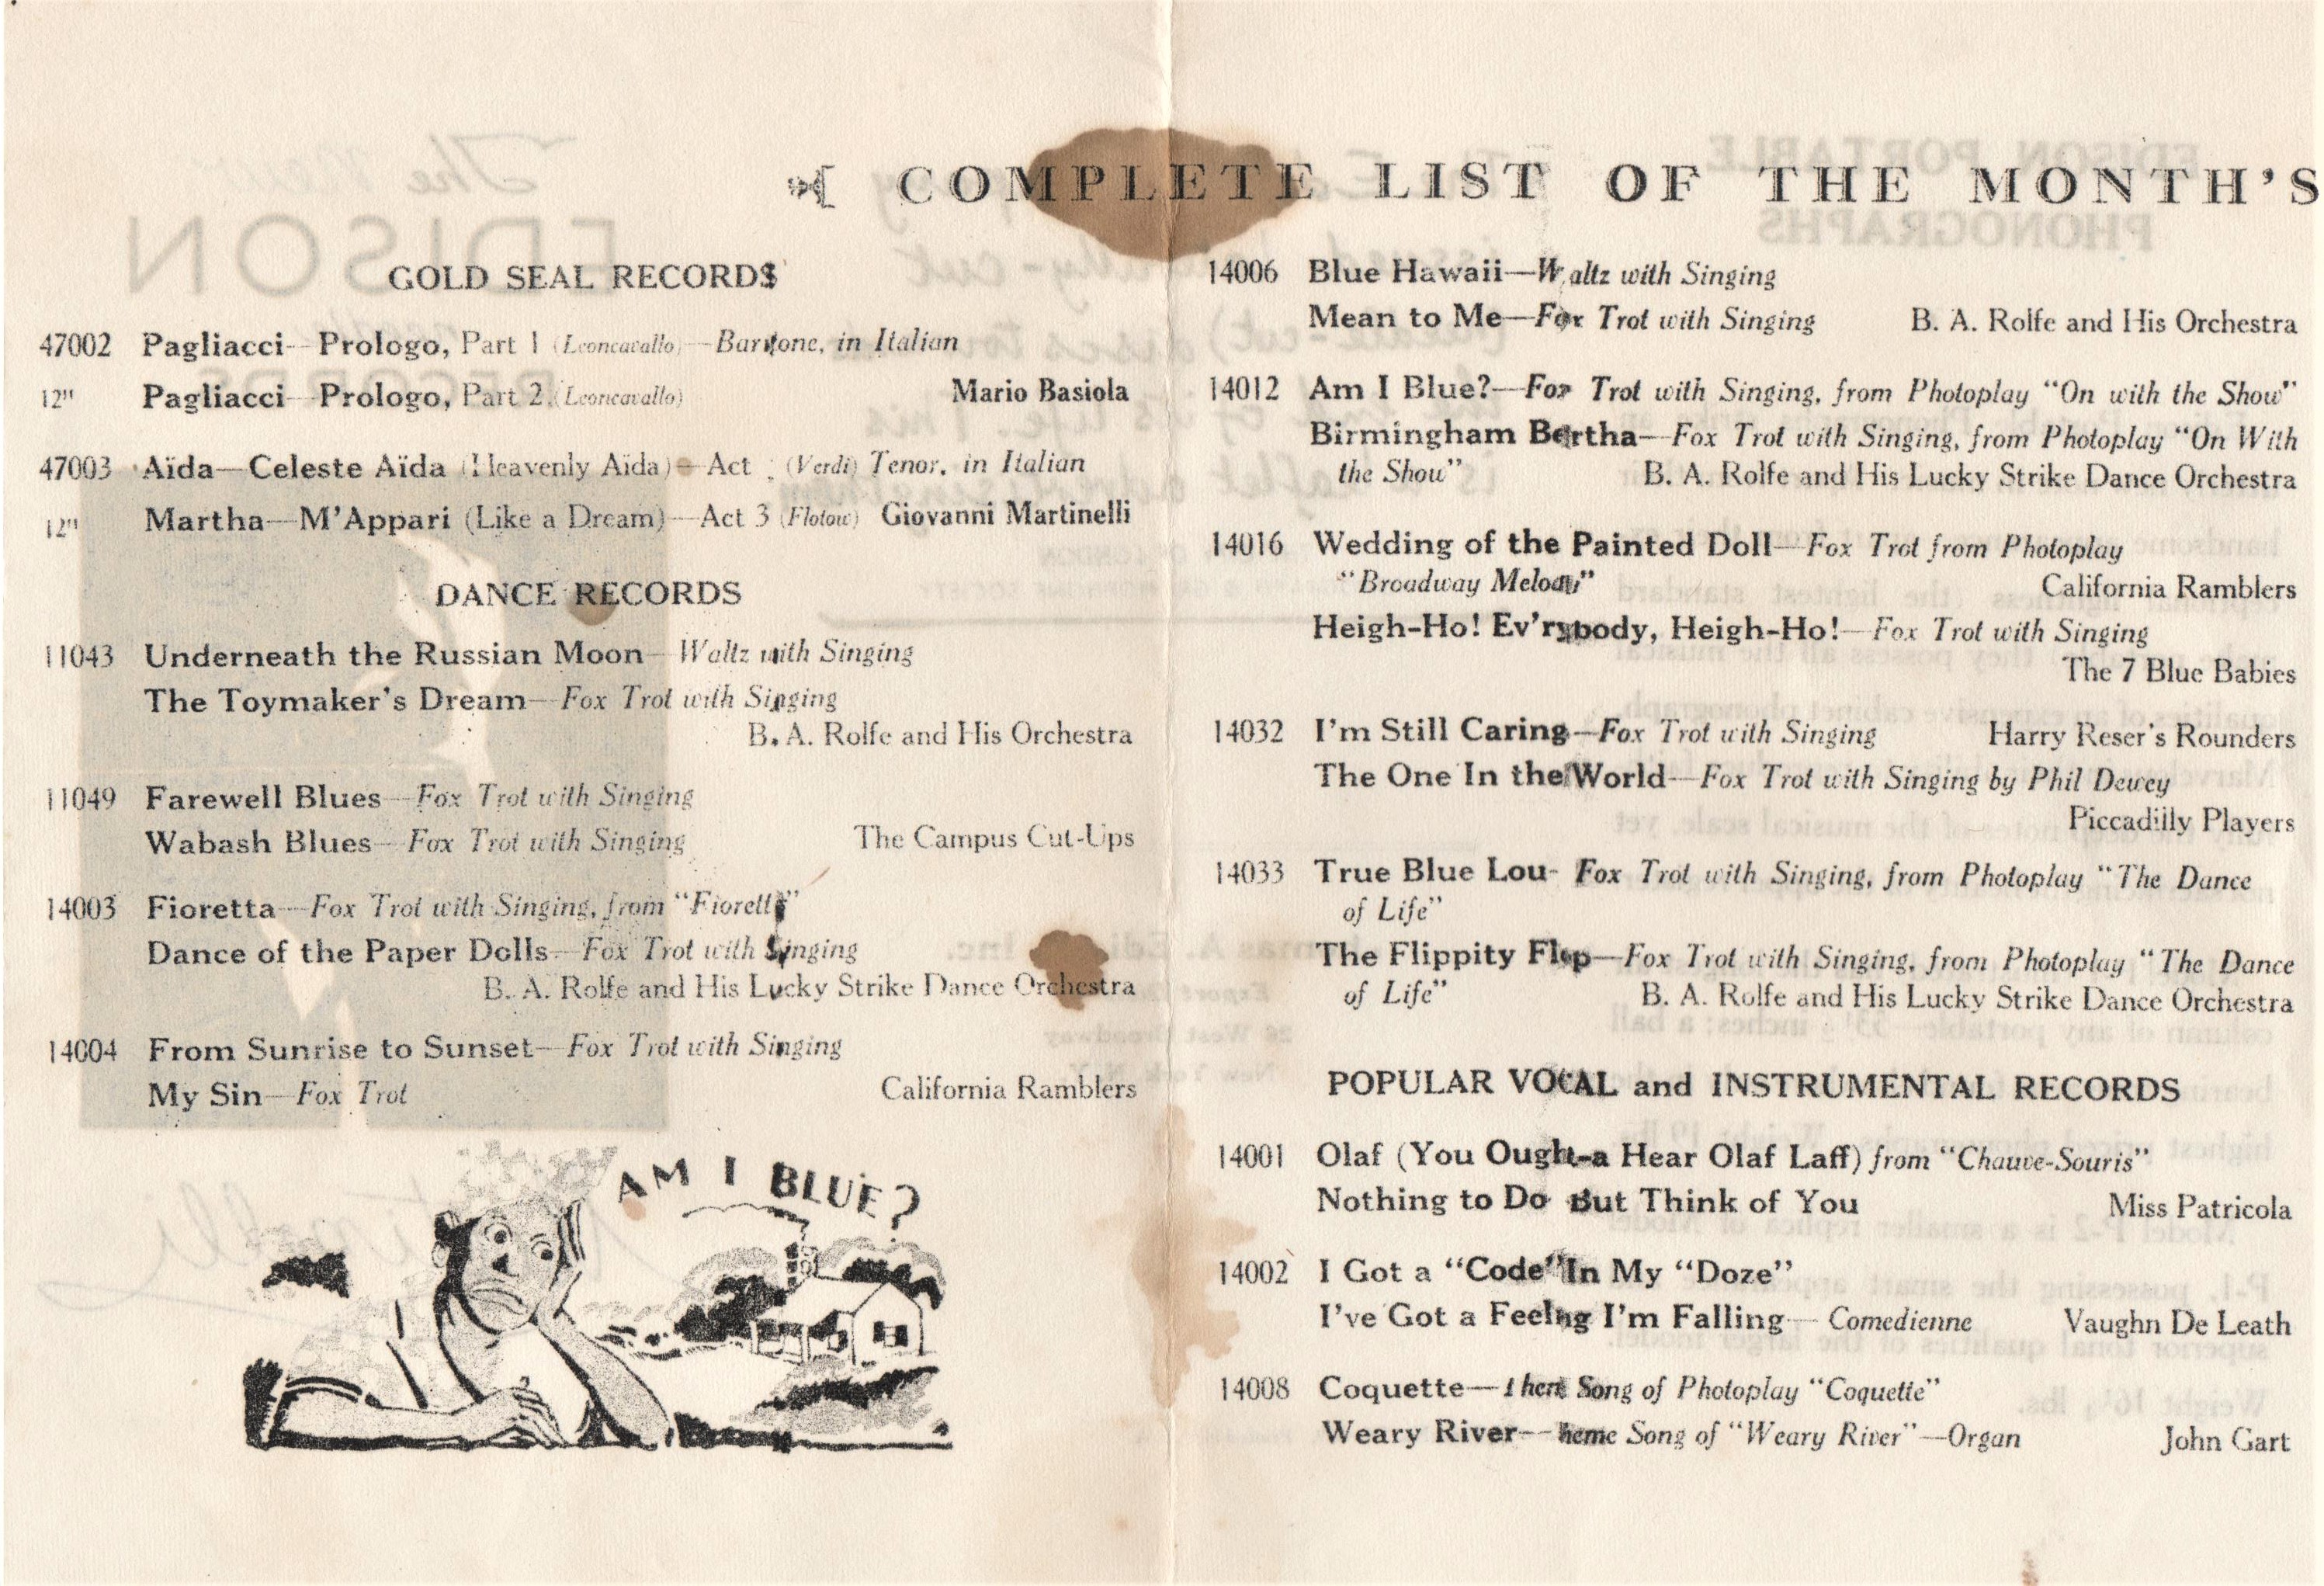 COMPLETE LIST OF THE MONTH'S
GOLD SEAL RECORDS
47002 Pagliacci—Prologo, Part 1 (Leoncavallo)—Baritone, in Italian
12" Pagliacci—Prologo, Part 2 (Leoncavallo) Mario Basiola
47003 Aïda—Celeste Aïda (Heavenly Aïda)—Act (Verdi) Tenor, in Italian
12" Martha—M'Appari (Like a Dream)—Act 3 (Flotow) Giovanni Martinelli
DANCE RECORDS
11043 Underneath the Russian Moon—Waltz with Singing
The Toymaker's Dream—Fox Trot with Singing
B. A. Rolfe and His Orchestra
11049 Farewell Blues—Fox Trot with Singing
Wabash Blues—Fox Trot with Singing The Campus Cut-Ups
14003 Fioretta—Fox Trot with Singing, from "Fioretta"
Dance of the Paper Dolls—Fox Trot with Singing
B. A. Rolfe and His Lucky Strike Dance Orchestra
14004 From Sunrise to Sunset—Fox Trot with Singing
My Sin—Fox Trot California Ramblers
AM I BLUE?
14006 Blue Hawaii—Waltz with Singing
Mean to Me—Fox Trot with Singing B. A. Rolfe and His Orchestra
14012 Am I Blue?—Fox Trot with Singing, from Photoplay "On with the Show"
Birmingham Bertha—Fox Trot with Singing, from Photoplay "On With
the Show" B. A. Rolfe and His Lucky Strike Dance Orchestra
14016 Wedding of the Painted Doll—Fox Trot from Photoplay
"Broadway Melody" California Ramblers
Heigh-Ho! Ev'rybody, Heigh-Ho!—Fox Trot with Singing
The 7 Blue Babies
14032 I'm Still Caring—Fox Trot with Singing Harry Reser's Rounders
The One In the World—Fox Trot with Singing by Phil Dewey
Piccadilly Players
14033 True Blue Lou—Fox Trot with Singing, from Photoplay "The Dance
of Life"
The Flippity Flop—Fox Trot with Singing, from Photoplay "The Dance
of Life" B. A. Rolfe and His Lucky Strike Dance Orchestra
POPULAR VOCAL and INSTRUMENTAL RECORDS
14001 Olaf (You Ought-a Hear Olaf Laff) from "Chauve-Souris"
Nothing to Do But Think of You Miss Patricola
14002 I Got a "Code" In My "Doze"
I've Got a Feeling I'm Falling—Comedienne Vaughn De Leath
14008 Coquette—Theme Song of Photoplay "Coquette"
Weary River—Theme Song of "Weary River"—Organ John Gart